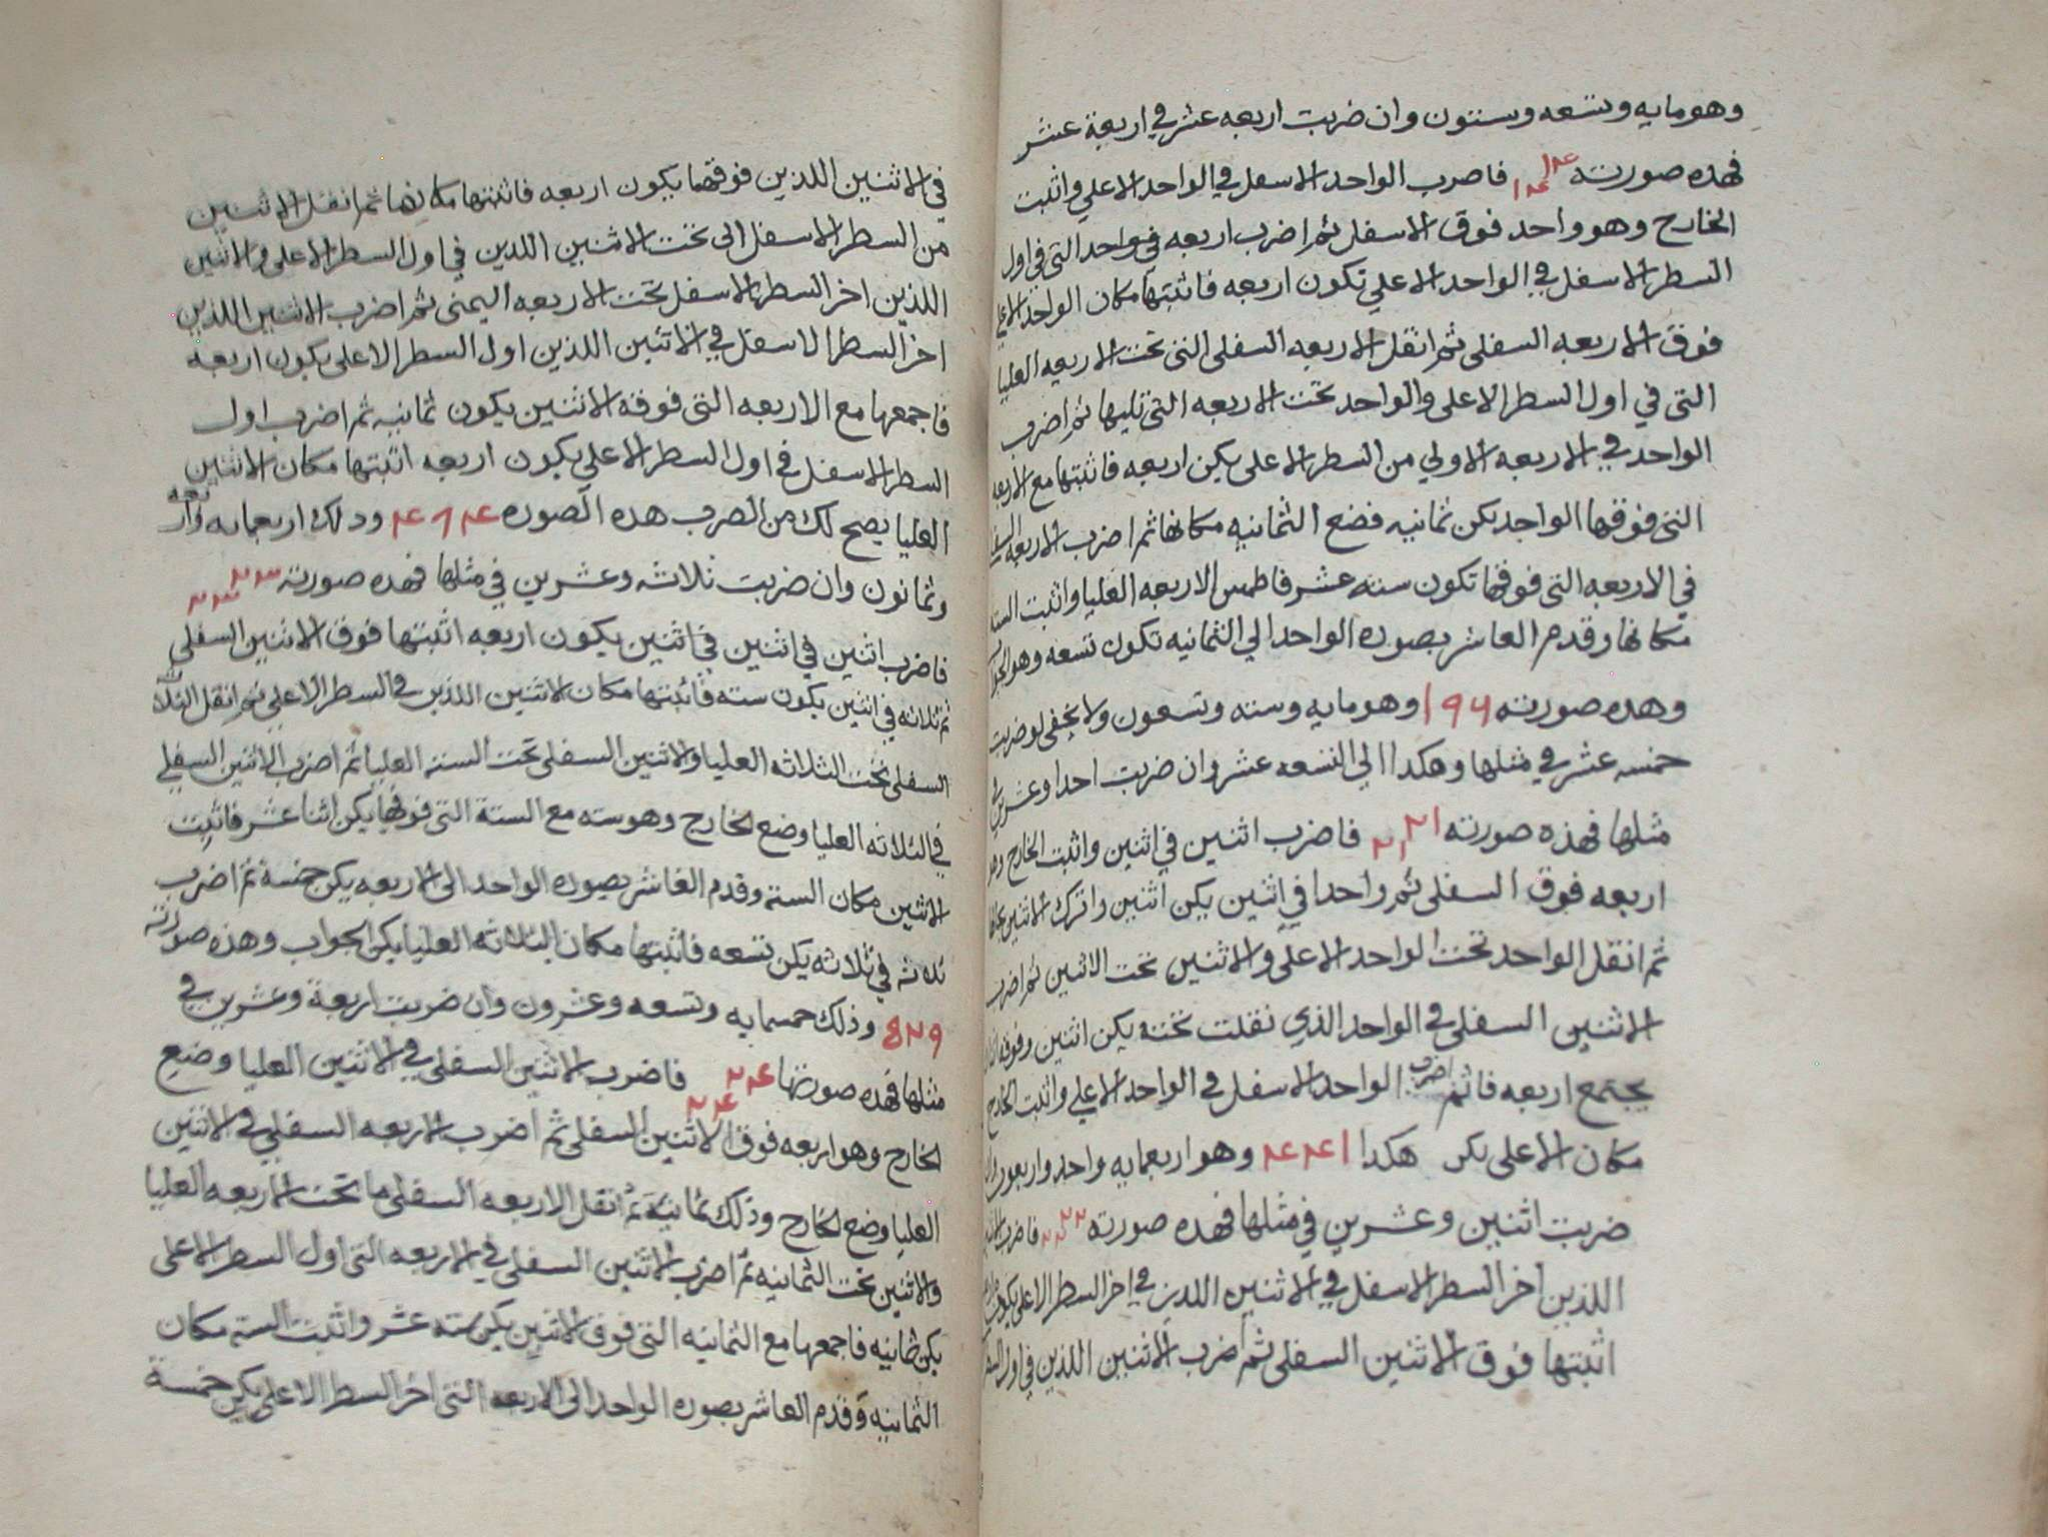 وهو مايه وتسعه وستون وان ضربت اربعه عشر في اربعة عشر
فهذه صورته ١۴ ١۴ فاضرب الواحد الاسفل في الواحد الاعلي واثبت
الخارج وهو واحد فوق الاسفل ثم اضرب اربعه في واحد التي في اول
السطر الاسفل في الواحد الاعلي تكون اربعه فاثبتها مكان الواحد الاعلي
فوق الاربعه السفلى ثم انقل الاربعه السفلى التي تحت الاربعه العليا
التي في اول السطر الاعلى والواحد تحت الاربعه التي تليها ثم اضرب
الواحد في الاربعه الاولي من السطر الاعلى يكن اربعه فاثبتها مع الاربعه
التي فوقها الواحد يكن ثمانيه فضع الثمانيه مكانها ثم اضرب الاربعه السفلى
في الاربعه التي فوقها تكون سته عشر فاطمس الاربعه العليا واثبت السته
مكانها وقدم العاشر بصوره الواحد الي الثمانيه تكون تسعه وهو الجواب
وهده صورته ١٩٦ وهو مايه وسته وتسعون ولا يخفى لو ضربت
خمسه عشر في مثلها وهكدا الي التسعه عشر وان ضربت احدا وعشرين في
مثلها فهذه صورته ٢١ ٢١ فاضرب اثنين في اثنين واثبت الخارج وهو
اربعه فوق السفلى ثم واحدا في اثنين يكن اثنين واترك الاثنين بحالها
ثم انقل الواحد تحت الواحد الاعلى والاثنين تحت الاثنين ثم اضرب
الاثنين السفلى في الواحد الذي نقلت تحته يكن اثنين وفوقه اثنان
يجتمع اربعه فاثم اضرب الواحد الاسفل في الواحد الاعلي واثبت الخارج
مكان الاعلى يكن هكدا ۴۴١ وهو اربعمايه واحد واربعون وان
ضربت اثنين وعشرين في مثلها فهده صورته ٢٢ ٢٢ فاضرب الاثنين
اللذين اخر السطر الاسفل في الاثنين اللدين في اخر السطر الاعلى يكون
اثبتها فوق الاثنين السفلى ثم اضرب الاثنين اللذين في اول السطر
في الاثنين اللذين فوقهما يكون اربعه فاثبتها مكانها ثم انقل الاثنين
من السطر الاسفل الى تحت الاثنين اللدين في اول السطر الاعلى والاثنين
اللذين اخر السطر الاسفل تحت الاربعه اليمنى ثم اضرب الاثنين اللذين
اخر السطر الاسفل في الاثنين اللذين اول السطر الاعلى يكون اربعه
فاجمعها مع الاربعه التي فوقه الاثنين يكون ثمانيه ثم اضرب اول
السطر الاسفل في اول السطر الاعلي يكون اربعه اثبتها مكان الاثنين
العليا يصح لك من الضرب هده الصوره ۴٨۴ ودلك اربعمايه واربعه
وثمانون وان ضربت ثلاثه وعشرين في مثلها فهده صورته ٢٣ ٢٣
فاضرب اثنين في اثنين في اثنين يكون اربعه اثبتها فوق الاثنين السفلى
ثم ثلاثه في اثنين يكون سته فاثبتها مكان الاثنين اللذين في السطر الاعلي ثم انقل الثلاثه
السفلى تحت الثلاثه العليا والاثنين السفلى تحت السته العليا ثم اضرب الاثنين السفلي
في الثلاثه العليا وضع الخارج وهو سته مع الستة التي فوقها يكن اثنا عشر فاثبت
الاثنين مكان السته وقدم العاشر بصوره الواحد الى الاربعه يكن خمسة ثم اضرب
ثلاثه في ثلاثه يكن تسعه فاثبتها مكان الثلاثه العليا يكن الجواب وهذه صورته
٥٢٩ وذلك خمسمايه وتسعه وعشرون وان ضربت اربعة وعشرين في
مثلها فهده صورتها ٢۴ ٢۴ فاضرب الاثنين السفلى في الاثنين العليا وضع
الخارج وهو اربعه فوق الاثنين السفلى ثم اضرب الاربعه السفلي في الاثنين
العليا وضع الخارج وذلك ثمانية ثم انقل الاربعه السفلى ما تحت الاربعه العليا
والاثنين تحت الثمانيه ثم اضرب الاثنين السفلى في الاربعه التي اول السطر الاعلى
يكن ثمانيه فاجمعها مع الثمانيه التي فوق الاثنين يكن سته عشر واثبت السته مكان
الثمانيه وقدم العاشر بصوره الواحد الى الاربعه التي اخر السطر الاعلى يكن خمسة